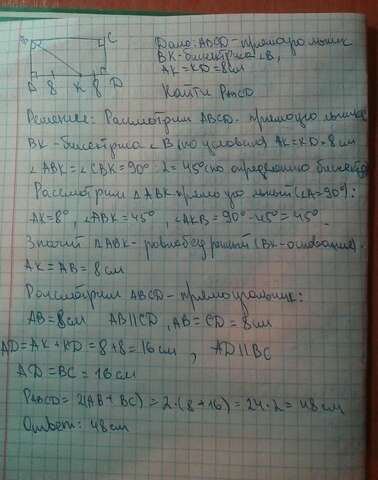 B C
A 8 K 8 D
Дано: ABCD - прямоугольник
BK - биссектриса ∠B,
AK = KD = 8 см
Найти PABCD
Решение: Рассмотрим ABCD - прямоугольник
BK - биссектриса ∠B (по условию) AK = KD = 8 см
∠ABK = ∠CBK = 90° : 2 = 45° (по определению биссект
Рассмотрим △ABK прямоугольный (∠A = 90°):
AK = 8°, ∠ABK = 45°, ∠AKB = 90° - 45° = 45°.
Значит △ABK - равнобедренный (BK - основание).
AK = AB = 8 см
Рассмотрим ABCD - прямоугольник:
AB = 8 см AB || CD, AB = CD = 8 см
AD = AK + KD = 8 + 8 = 16 см, AD || BC
AD = BC = 16 см
PABCD = 2(AB + BC) = 2 · (8 + 16) = 24 · 2 = 48 см
Ответ: 48 см